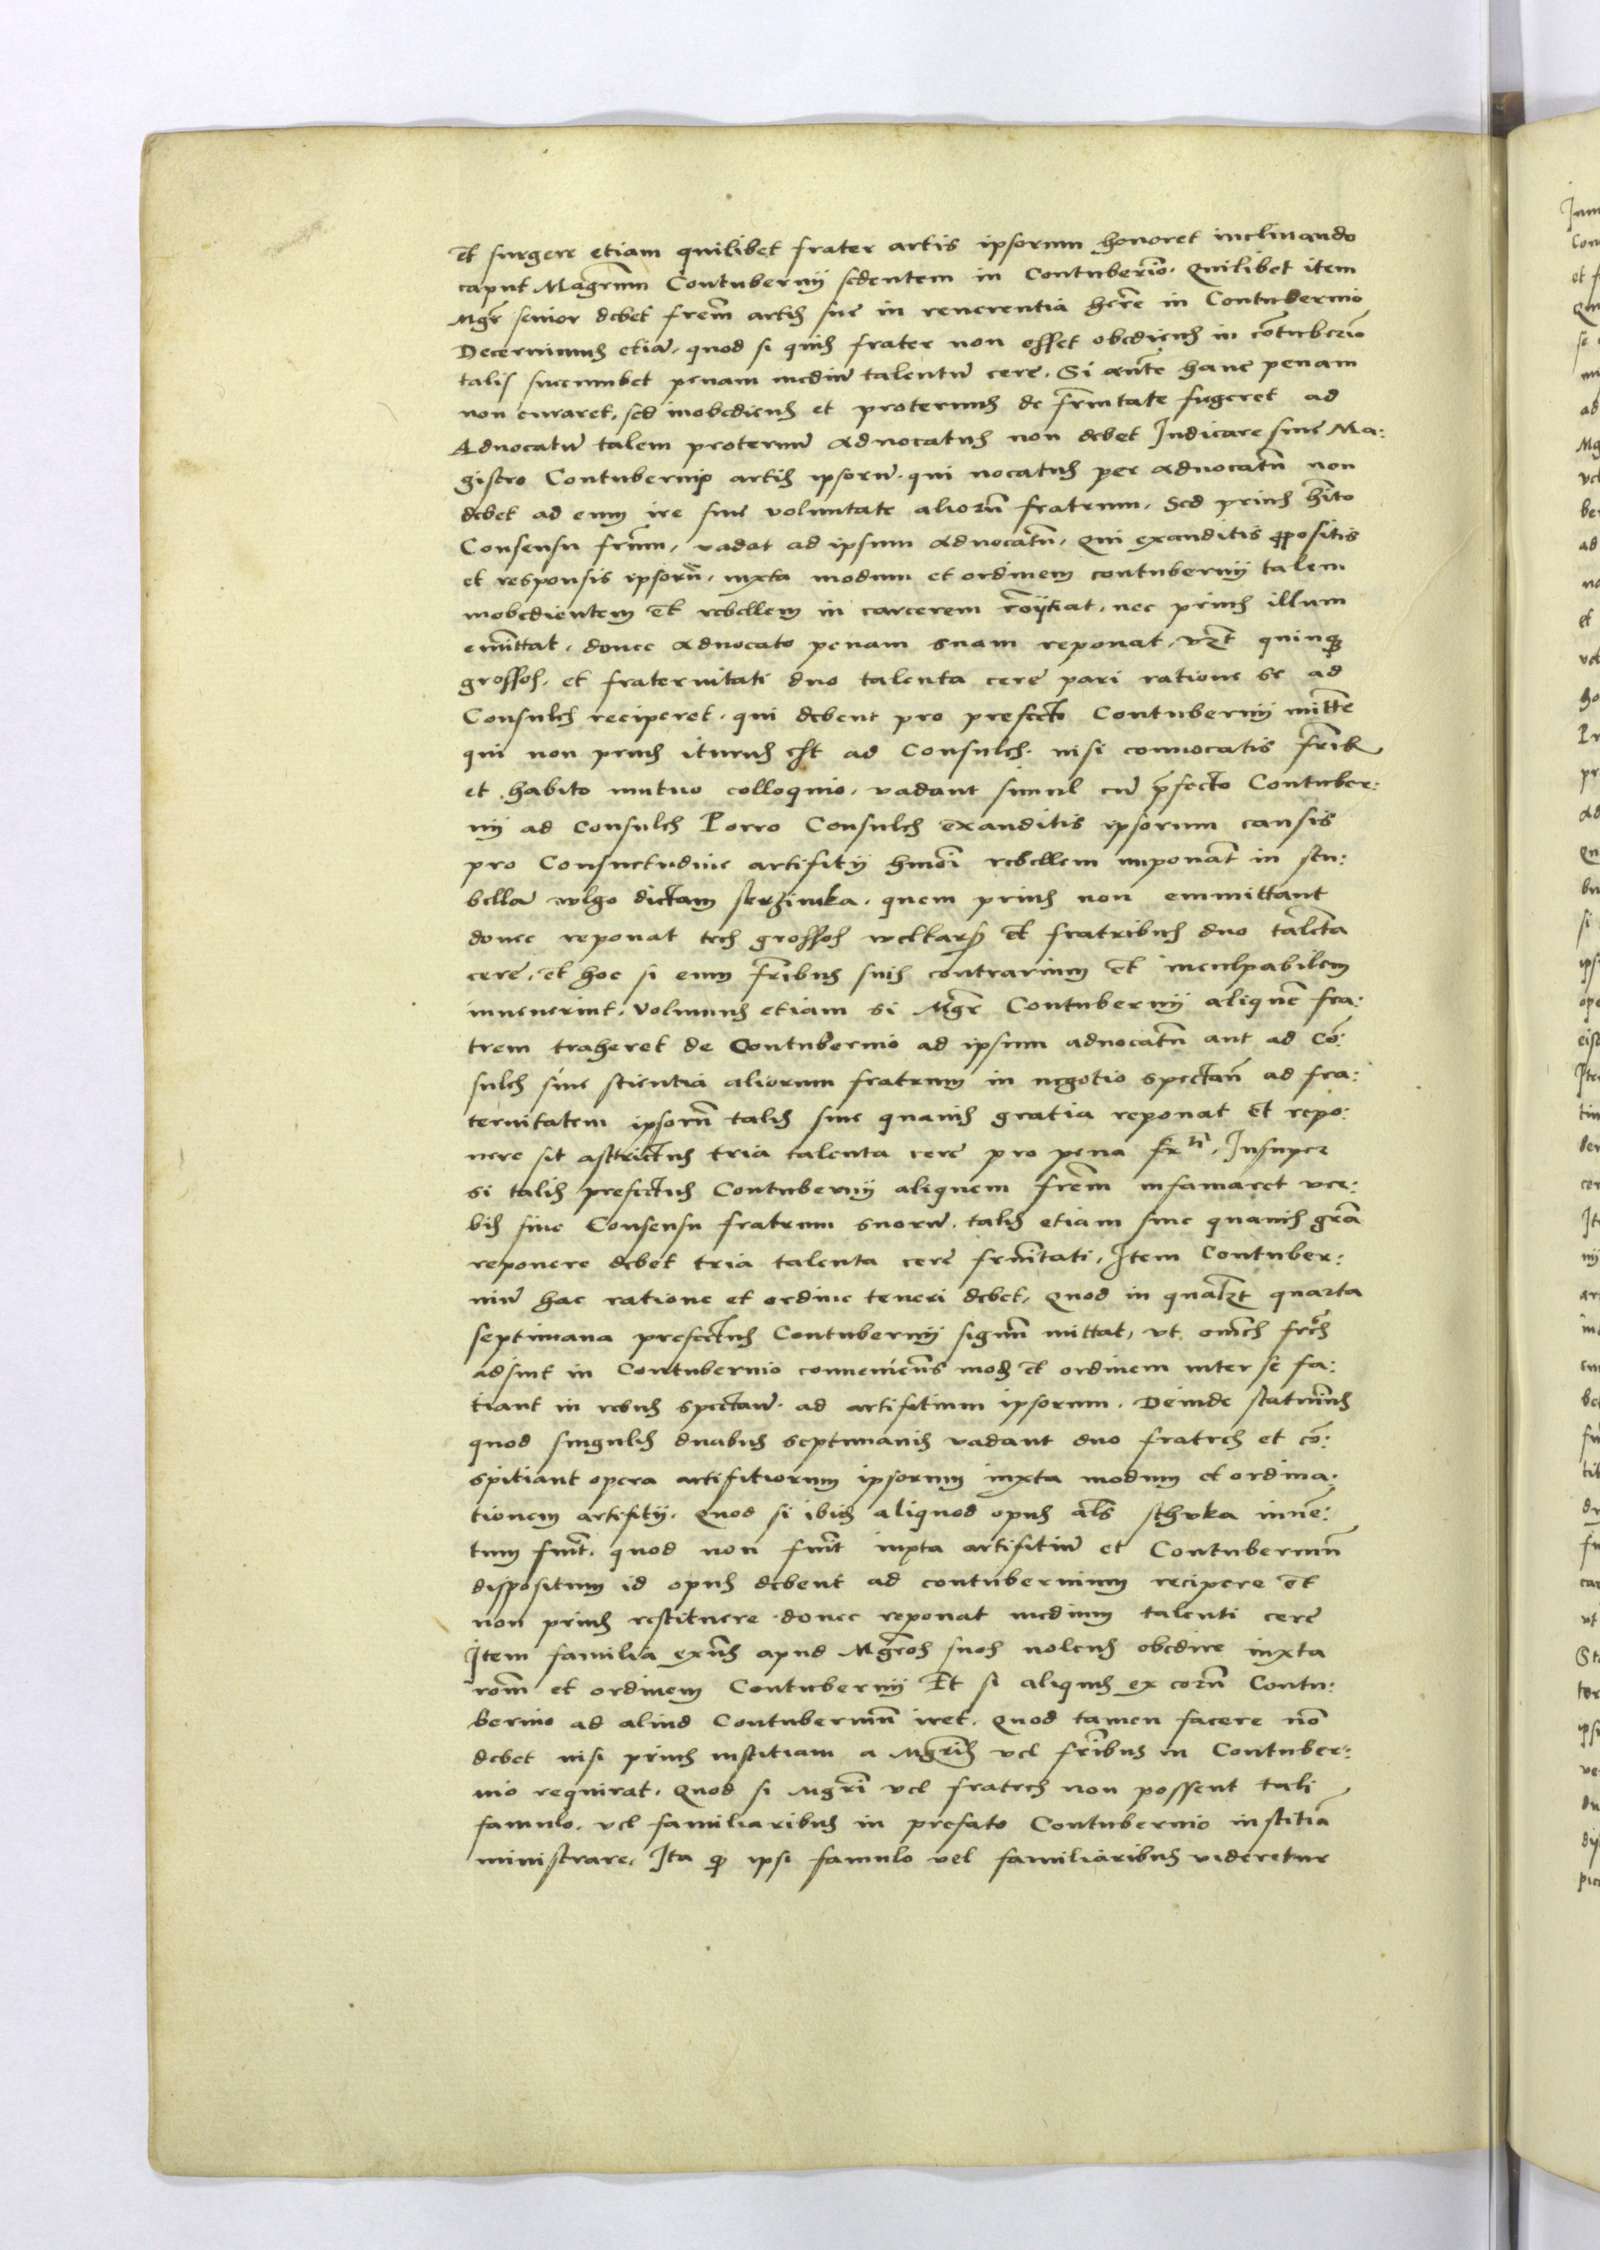 Et surgere etiam quilibet frater artis ipsorum honoret inclinando
caput Magrum Contubernij sedentem in Contuberio. Quilibet item
Mgr senior debet frem artis sue in reuerentia here in Contubernio
Decernimus etia. quod si quis frater non esset obediens in cotuberio
talis sucumbet penam mediu talentu cere. Si aute hanc penam
non curaret, sed inobediens et proteruus de frnitate fugeret ad
Aduocatu talem proteruu Aduocatus non debet Iudicare sine Ma:
gistro Contubernio artis ipsoru. qui uocatus per Aduocatu non
debet ad eum ire sine voluntate alioru fratrum. Sed prius hito
Consensu frum, vadat ad ipsum Aduocatu, Qui exauditis ppositis
et responsis ipsoru, iuxta modum et ordinem contubernij talem
inobedientem et rebellem in carcerem coijtiat, nec prius illum
emittat, donec Aduocato penam suam reponat, vzt quinq
grossos, et fraternitati duo talenta cere pari ratione se ad
Consules reciperet, qui debent pro prefecto Contubernij mitte
qui non prius iturus est ad Consules, nisi conuocatis frib
et habito mutuo colloquio, vadant simul cu pfecto Contuber:
nij ad Consules Porro Consules exauditis ipsorum causis
pro Consuetudine artifitij hmoi rebellem imponat in scu:
bella wlgo dictam serzinka, quem prius non emmittant
donec reponat tres grossos et fratribus duo taleta
cere, et hoc si eum fribus suis contrarium et inculpabilem
inuenerint, Volumus etiam si Mgr Contubernij alique fra:
trem traheret de Contubernio ad ipsum aduocatu aut ad Co:
sules sine scientia aliorum fratrum in negotio spectan ad fra:
ternitatem ipsoru talis sine quauis gratia reponat et repo:
nere sit asttrictus tria talenta cere pro pena frti, Insuper
si talis prefectus Contubernij aliquem frem infamaret ver:
bis sine Consensu fratrum suoru. talis etiam sine quauis gra
reponere debet tria talenta cere frnitati, Item Contuber:
niu hac ratione et ordine teneri debet, Quod in qualzt quarta
septimana prefectus Contubernij signu mittat, vt omes fres
adsint in Contubernio conueniens mod et ordinem inter se fa:
tiant in rebus spectan. ad artifitium ipsorum. Deinde statuimus
quod singulis duabus septimanis vadant duo fratres et co:
spitiant opera artifitiorum ipsorum iuxta modum et ordina:
tionem artifitij. Quod si ibi aliquod opus als sthuka inue:
tum fuit, quod non fuit iuxta artifitiu et Contuberniu
dispositum id opus debent ad contubernium recipere et
non prius restituere donec reponat medium talenti cere
Item familia exns apud Mgros suos nolens obedire iuxta
rom et ordinem Contubernij Et si aliquis ex eoru Contu:
bernio ad aliud Contuberniu iret. Quod tamen facere no
debet nisi prius iustitiam a Mgris vel fribus in Contuber:
nio requirat. Quod si Mgri vel fratres non possent tali
famulo, vel familiaribus in prefato Contubernio iustitia
ministrare, Ita q ipsi famulo vel familiaribus uideretur